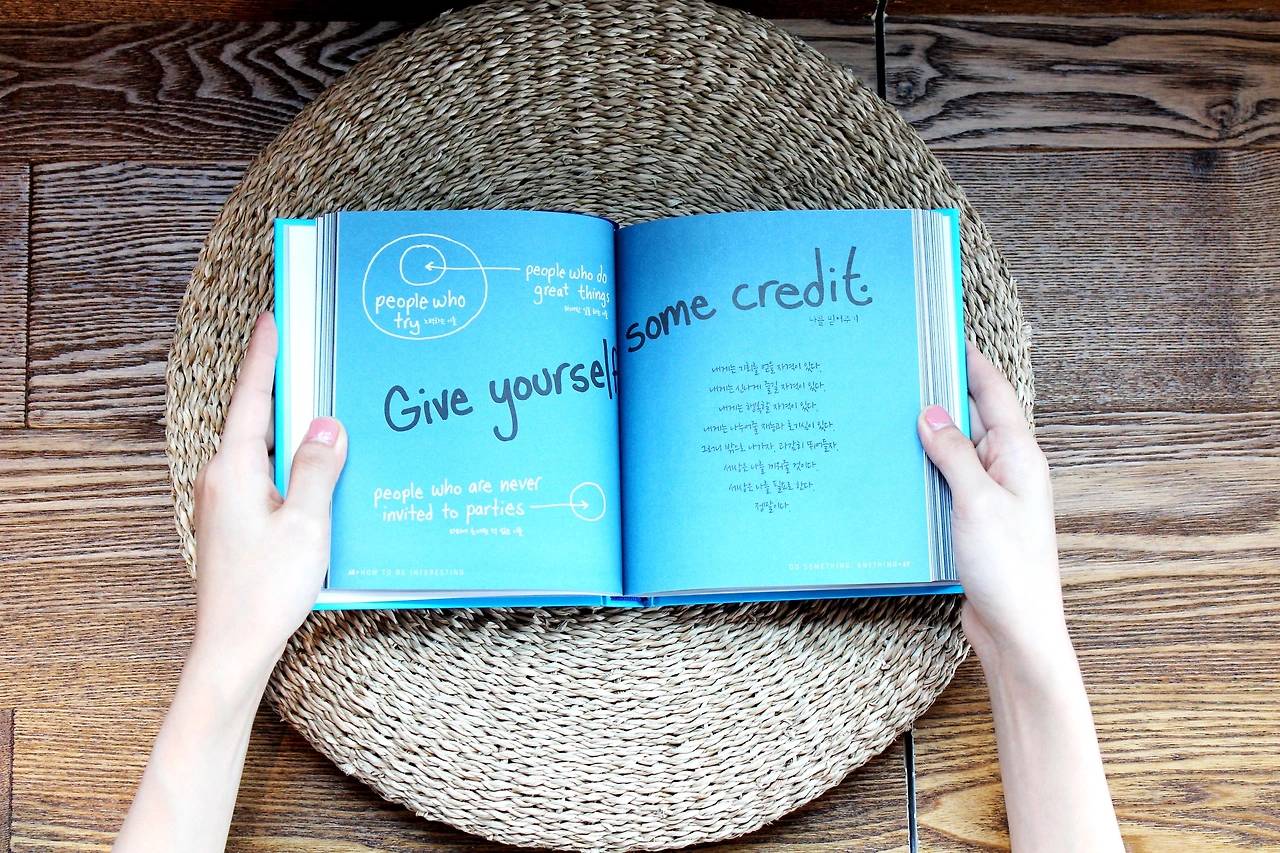 people who do
great things
people who
try 노력하는 이들
Give yourself
people who are never
invited to parties
HOW TO BE INTERESTING
some credit.
나를 믿어주기
내게는 기회를 얻을 자격이 있다.
내게는 신나게 즐길 자격이 있다.
내게는 행복할 자격이 있다.
내게는 나누어줄 재능과 호기심이 있다.
그러니 밖으로 나가자. 과감히 뛰어들자.
세상은 나를 끼워줄 것이다.
세상은 나를 필요로 한다.
정말이다.
DO SOMETHING. ANYTHING